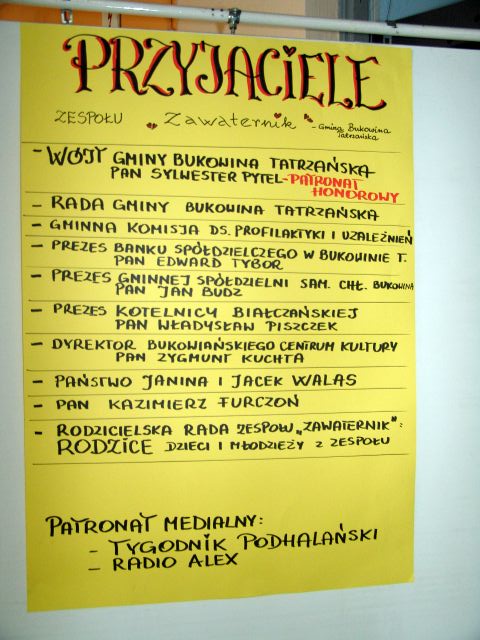 PRZYJACIELE
ZESPOŁU Zawaternik - Gmina Bukowina
Tatrzańska
- WÓJT GMINY BUKOWINA TATRZAŃSKA
PAN SYLWESTER PYTEL - PATRONAT
HONOROWY
- RADA GMINY BUKOWINA TATRZAŃSKA
- GMINNA KOMISJA DS. PROFILAKTYKI I UZALEŻNIEŃ
- PREZES BANKU SPÓŁDZIELCZEGO W BUKOWINIE T.
PAN EDWARD TYBOR
- PREZES GMINNEJ SPÓŁDZIELNI SAM. CHŁ. BUKOWINA
PAN JAN BUDZ
- PREZES KOTELNICY BIAŁCZAŃSKIEJ
PAN WŁADYSŁAW PISZCZEK
- DYREKTOR BUKOWIAŃSKIEGO CENTRUM KULTURY
PAN ZYGMUNT KUCHTA
- PAŃSTWO JANINA I JACEK WALAS
- PAN KAZIMIERZ FURCZOŃ
- RODZICIELSKA RADA ZESPOŁU „ZAWATERNIK":
RODZICE DZIECI I MŁODZIEŻY Z ZESPOŁU
PATRONAT MEDIALNY:
- TYGODNIK PODHALAŃSKI
- RADIO ALEX